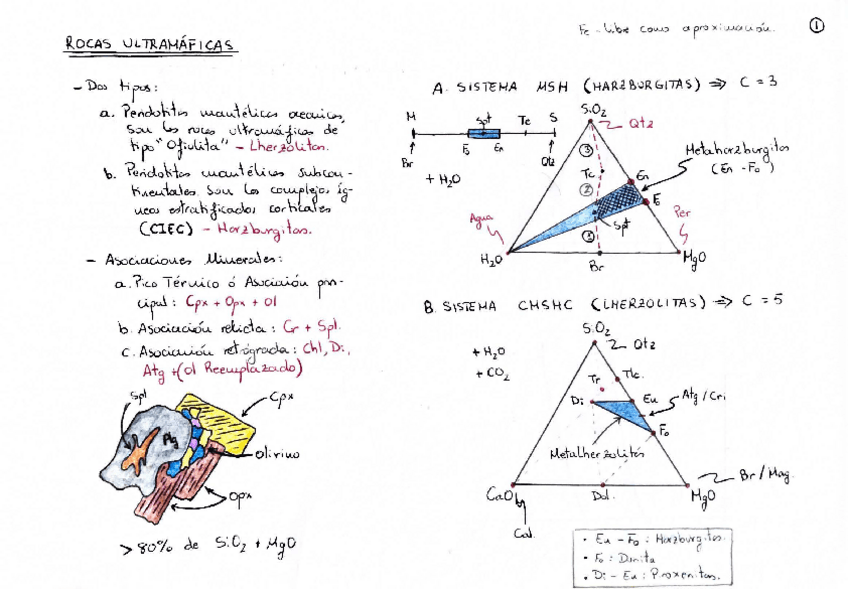 Fe - libre como aproximación.
①
ROCAS ULTRAMÁFICAS
- Dos tipos:
a. Peridotitas mantélicas oceánicas,
son las rocas ultramáficas de
tipo "Ofiolita" - Lherzolitas.
b. Peridotitas mantélicas subcon-
tinentales. Son los complejos íg-
neos estratificados corticales
(CIEC) - Harzburgitas.
- Asociaciones Minerales:
a. Pico Térmico ó Asociación prin-
cipal: Cpx + Opx + Ol
b. Asociación relicta: Gr + Spl.
c. Asociación retrógrada: Chl, Di,
Atg + (Ol Reemplazado)
Spl
Cpx
Ag
Olivino
Opx
>80% de SiO₂ + MgO
A. SISTEMA MSH (HARZBURGITAS) ⇒ C = 3
M
Spt
Tc
S
Fo
En
Br
Qtz
+ H₂O
SiO₂
Qtz
③
Tc
②
En
Fo
①
Spt
Metaharzburgitas
(En - Fo)
Agua
Per
H₂O
Br
MgO
B. SISTEMA CMSHC (LHERZOLITAS) ⇒ C = 5
+ H₂O
+ CO₂
SiO₂
Qtz
Tr
Tlc.
Di
En
Atg / Cri
Fo
Metalherzolitas
Br / Mag.
CaO
Dol.
MgO
Cal.
• En - Fo : Harzburgitas.
• Fo : Dunita
• Di - En : Piroxenitas.